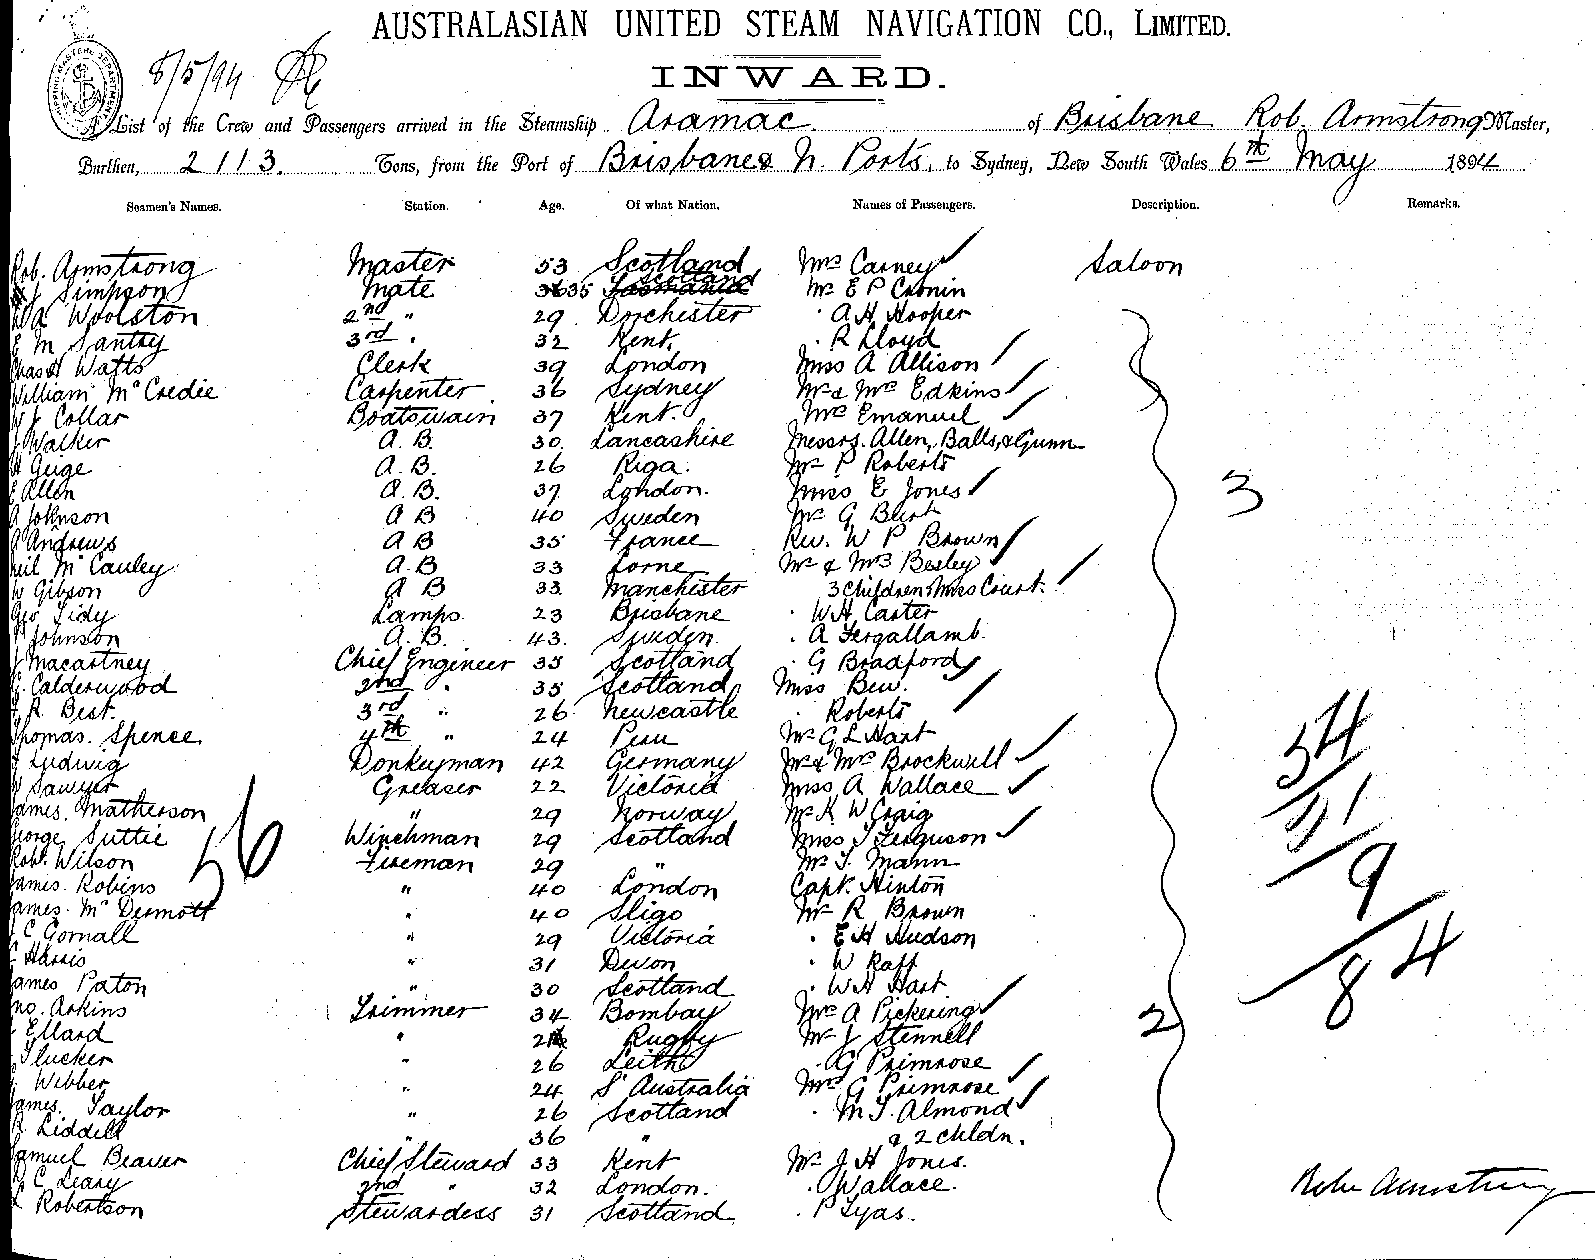 AUSTRALASIAN UNITED STEAM NAVIGATION CO., LIMITED.
8/5/94
INWARD.
A List of the Crew and Passengers arrived in the Steamship Aramac of Brisbane Rob. Armstrong Master,
Burthen, 2113. Tons, from the Port of Brisbane & N. Ports, to Sydney, New South Wales 6th May 1894
Seamen's Names. Station. Age. Of what Nation. Names of Passengers. Description. Remarks.
Rob. Armstrong Master 53 Scotland Mrs Carney Saloon
J. Simpson Mate 35 Scotland Mr E P Cronin
Woolston 2nd " 29 Dorchester " A H Hooper
E M Santry 3rd " 32 Kent. " R Lloyd
Chas H Watts Clerk 39 London Miss A Allison
William McCredie Carpenter 36 Sydney Mr & Mrs Edkins
W J Collar Boatswain 37 Kent. Mrs Emanuel
J Walker A.B. 30 Lancashire Messrs. Allen, Balls, & Gunn
H Geige A.B. 26 Riga. Mr P Roberts
E Allen A.B. 37 London. Miss E Jones
A Johnson A B 40 Sweden Mr G Burt
A Andrews A B 35 France Rev. W P Brown 3
Neil McCauley A.B 33 Lorne Mr & Mrs Besley
W Gibson A B 33 Manchester 3 Children & Miss Court.
Geo Tidy Lamps 23 Brisbane " W H Carter
Johnson A.B. 43. Sweden " A Fergallamb.
J Macartney Chief Engineer 35 Scotland " G Bradford
G. Calderwood 2nd " 35 Scotland Miss Bew.
R. Best. 3rd " 26 Newcastle " Roberts
Thomas. Spence 4th " 24 Peru Mr G L Hart 54
Ludwig Donkeyman 42 Germany Mr & Mrs Brockwell
Sawyer Greaser 22 Victoria Miss A Wallace
James. Matherson " 29 Norway Mr K W Craig 31
George Suttie 56 Winchman 29 Scotland Miss J Ferguson
Robt. Wilson Fireman 29 " Mr T. Mann 9
James. Robins " 40 London Capt. Hinton
James. McDermott " 40 Sligo Mr R Brown
J C Gornall " 29 Victoria " E H Hudson
C Harris " 31 Devon " W Raff 84
James Paton " 30 Scotland " W H Hart
Jno. Arkins Trimmer 34 Bombay Mrs A Pickering
Ellard " Rugby Mr J Stennell 2
Tlucker " 26 Leith " G Primrose
Webber " 24 S Australia Mrs G Primrose
James. Taylor " 26 Scotland " M T. Almond
R Liddell " 36 " & 2 chldn.
Samuel Beaver Chief Steward 33 Kent Mr J H Jones.
C Leary 2nd " 32 London. " Wallace. Robr Armstrong
Robertson Stewardess 31 Scotland " P Lyas.